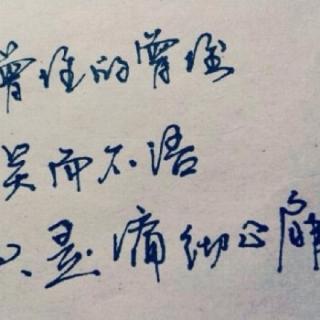 曾经的曾经
笑而不语
只是痛彻心扉